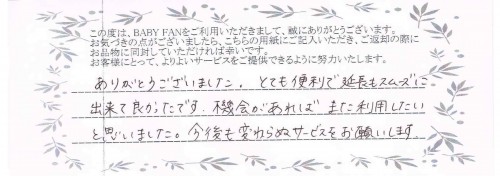 この度は、BABY FANをご利用いただきまして、誠にありがとうございます。
お気づきの点がございましたら、こちらの用紙にご記入いただき、ご返却の際に
お品物に同封していただければ幸いです。
お客様にとって、よりよいサービスをご提供できるように努力いたします。
ありがとうございました。とても便利で延長もスムーズに
出来て良かったです。機会があれば また利用したい
と思いました。今後も変わらぬサービスをお願いします。